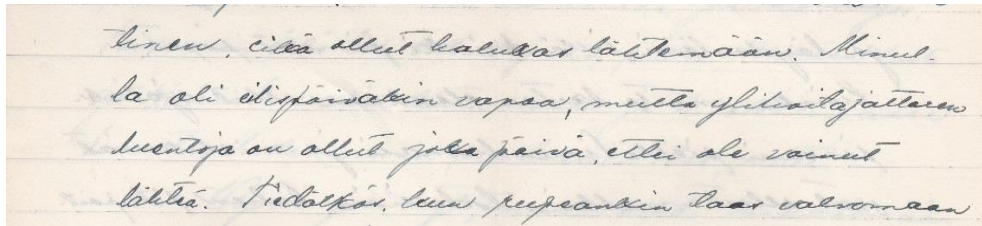 tinen, eikä ollut halukas lähtemään. Minul-
la oli iltapäiväkin vapaa, mutta ylihoitajattaren
luentoja on ollut joka päivä, ettei ole voinut
lähteä. Tiedätkös, kun rupeankin taas valvomaan